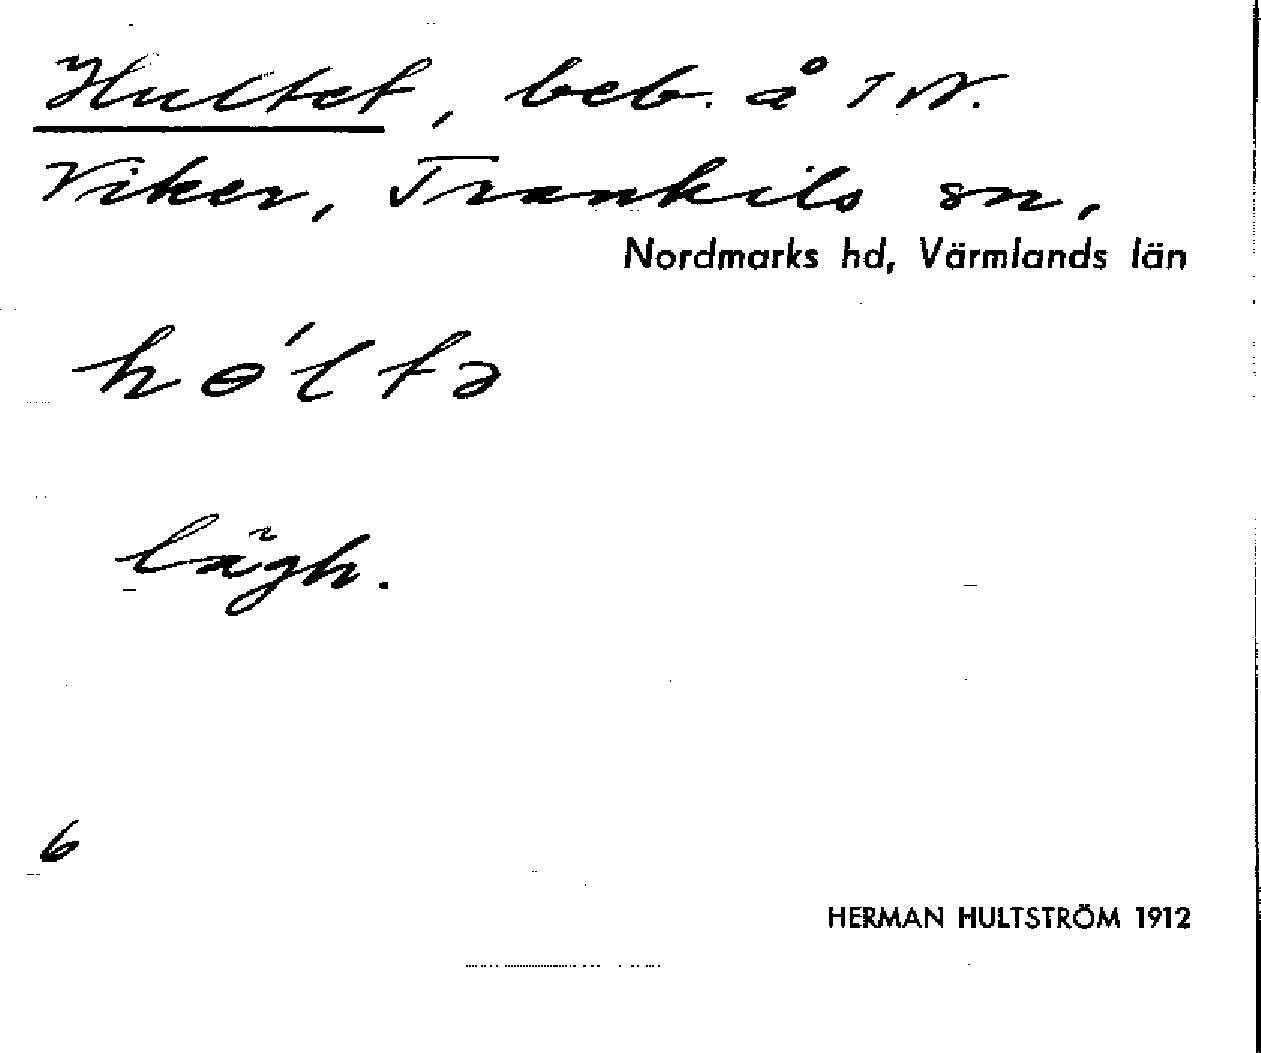 Hultet, beb. å 1 N.
Viker, Trankils sn,
Nordmarks hd, Värmlands län
hɵ́ltə
lägh.
6
HERMAN HULTSTRÖM 1912